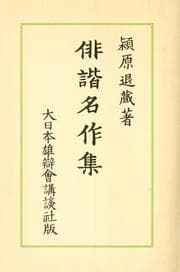 潁原退藏著
俳諧名作集
大日本雄辯會講談社版